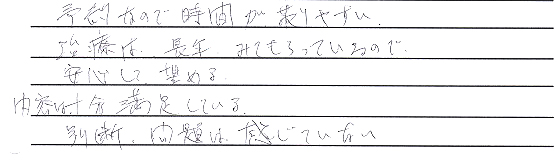 予約なので時間が取りやすい.
治療は、長年みてもらっているので、
安心して望める.
内容は十分満足している.
別断、問題は感じていない